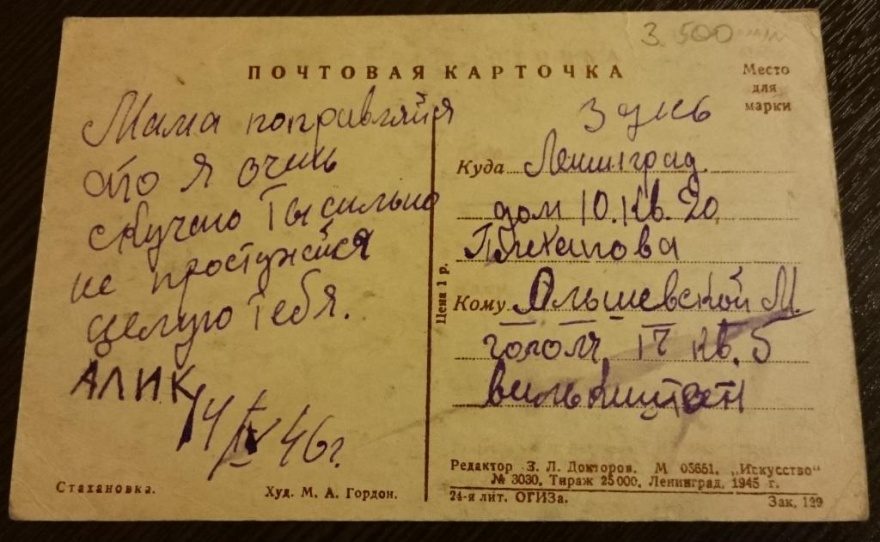 3.500
ПОЧТОВАЯ КАРТОЧКА
Место
для
марки
Мама поправляйся
ато я очень
скучаю Ты сильно
не простужайся
целую Тебя.
АЛИК
14/IV 46г.
Стахановка.
Худ. М. А. Гордон.
Цена 1 р.
Куда Ленинград
дом 10. кв. 20
Кому Ольшевской М.
17 кв. 5
Редактор З. Л. Докторов. М 03651. „Искусство“
№ 3030. Тираж 25000. Ленинград, 1945 г.
24-я лит. ОГИЗа.
Зак. 129